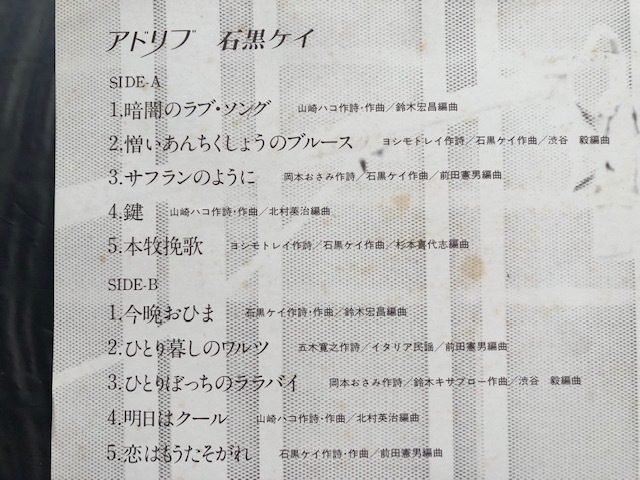 アドリブ 石黒ケイ
SIDE-A
1.暗闇のラブ・ソング 山崎ハコ作詩・作曲／鈴木宏昌編曲
2.憎いあんちくしょうのブルース ヨシモトレイ作詩／石黒ケイ作曲／渋谷 毅編曲
3.サフランのように 岡本おさみ作詩／石黒ケイ作曲／前田憲男編曲
4.鍵 山崎ハコ作詩・作曲／北村英治編曲
5.本牧挽歌 ヨシモトレイ作詩／石黒ケイ作曲／杉本喜代志編曲
SIDE-B
1.今晩おひま 石黒ケイ作詩・作曲／鈴木宏昌編曲
2.ひとり暮しのワルツ 五木寛之作詩／イタリア民謡／前田憲男編曲
3.ひとりぼっちのララバイ 岡本おさみ作詩／鈴木キサブロー作曲／渋谷 毅編曲
4.明日はクール 山崎ハコ作詩・作曲／北村英治編曲
5.恋はもうたそがれ 石黒ケイ作詩・作曲／前田憲男編曲